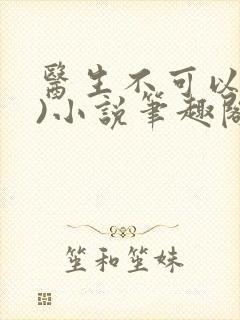 醫生不可以
)小說筆趣閣
笙和笙妹